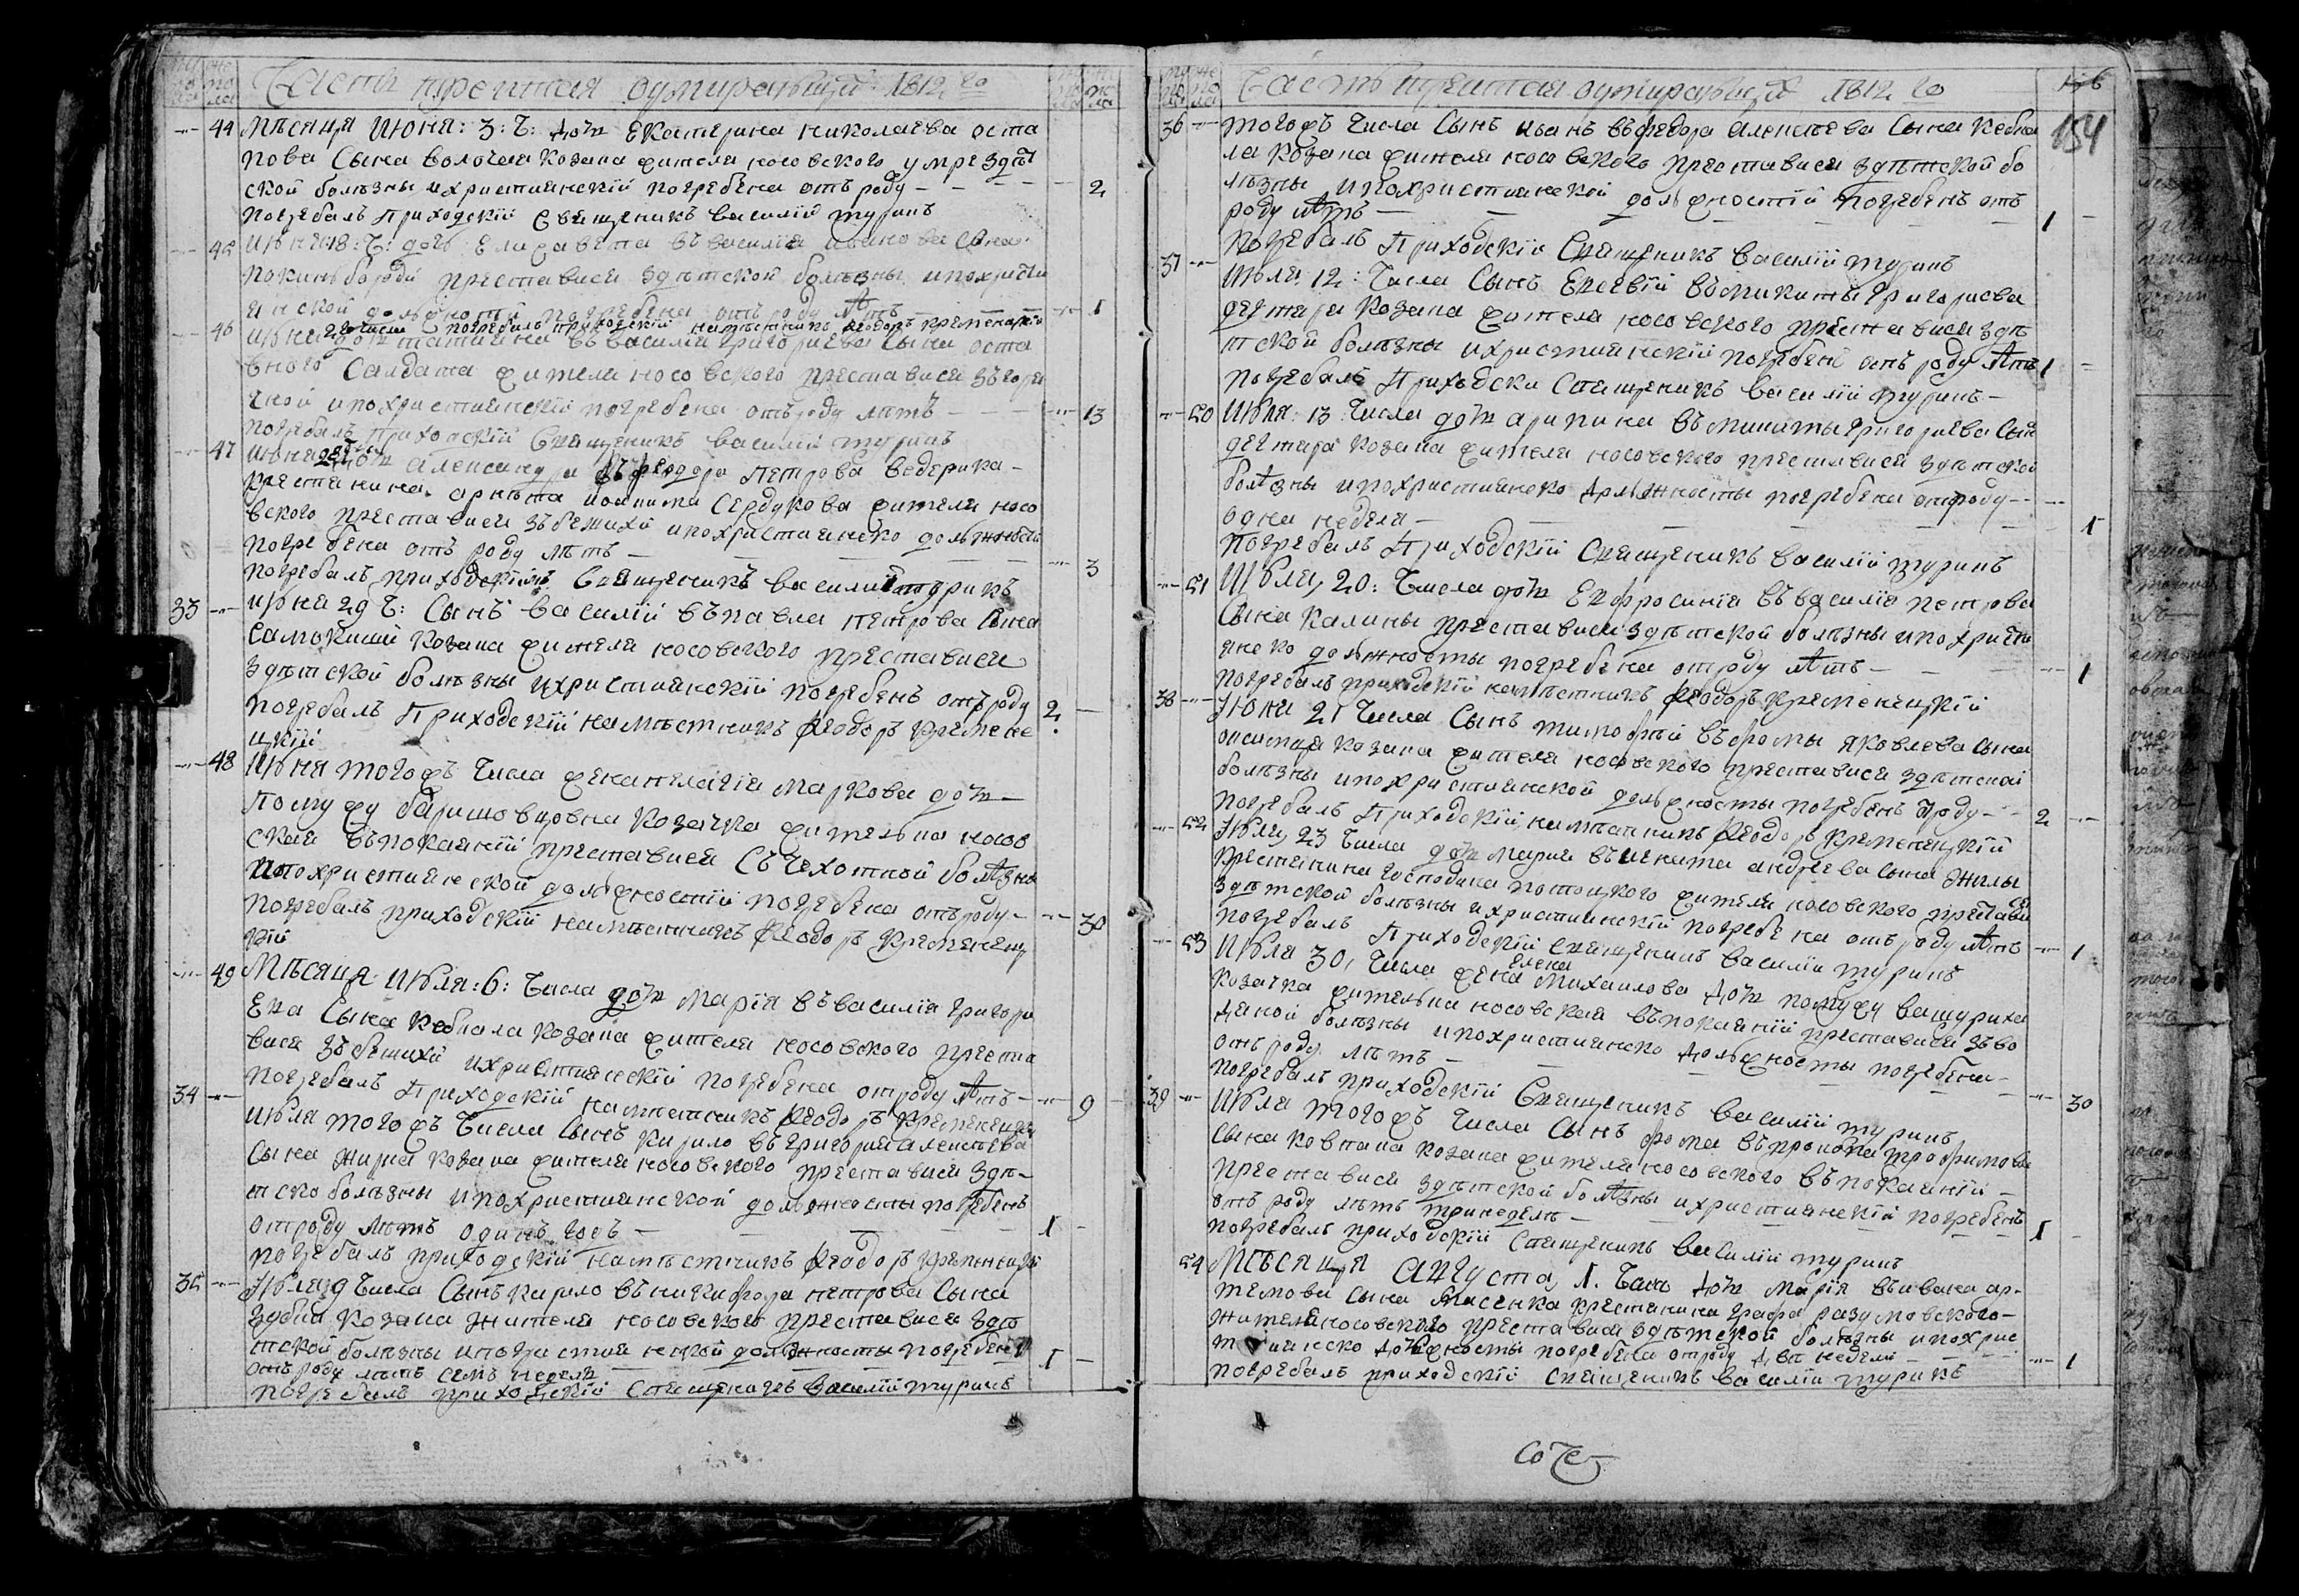 Часть третая оумирающих 1812 го
44 Мѣсяца Июня: 3: Ч: дочь Екатерина николаева оста
пова Сына волочая козака жителя носовского умре здѣт
ской болѣзны ихристиянскій погребена отъ роду 2
погребалъ приходскій Священикъ василій туринъ
45 Июня 18: Ч: дочь Елисавета въ василія иванова Сына
покиньбороди преставися здѣтской болѣзны ипохристи
янской должности погребена отъ роду лѣтъ 1
числа погребалъ приходскій намѣстникъ Ѳеодоръ кременецкій
46 Июня дочь татияна въ василія григориева Сына оста
вного Салдата жителя носовского преставися зъгоря
чкой ипохристиянскій погребена отъ роду лѣтъ 13
погребалъ Приходскій Священикъ василій туринъ
47 Июня дочь александра въ феодора петрова ведерика
крестянина сердюкова жителя носо
вского преставися зъбешихи ипохристиянско должности
погребена отъ роду лѣтъ 3
погребалъ приходскій Священикъ василий туринъ
33 Июня 29 Ч: Сынъ василій въ павла петрова Сына
Самокиши козака жителя носовского преставися
здѣтской болѣзны ихристиянскій погребенъ отъ роду 2
погребалъ Приходскій намѣстникъ Ѳеодоръ кремене
цкій
48 Июня тогожъ числа жена пелагія Маркова дочь
помужу баришовцовна козачка жителька носов
ская въпокаяній преставися Съчехотной болѣзны
ипохристиянской должностій погребена отъ роду 30
погребалъ приходскій намѣстникъ Ѳеодоръ кременец
кій
49 Мѣсяца Июля: 6: Числа дочь Марія въ василія григори
ева Сына Кебкала козака жителя носовского преста
вися зъбешихи ихристиянскій погребена отроду лѣтъ 9
погребалъ Приходскій намѣстникъ Ѳеодоръ кременецкий
34 Июля тогожъ Числа Сынъ кирило въ григория алексѣева
Сына жирна козака жителя носовского преставися здѣ
тско болѣзны ипохристиянской должности погребенъ
отроду лѣтъ одинъ годъ 1
погребалъ приходскій намѣстникъ Ѳеодоръ кременицкій
35 Июля 9 Числа Сынъ кирило въ никифора петрова Сына
Зубка козака жителя носовского преставися здѣ
тской болѣзны ипохристиянской должности погребенъ 1
отъ роду лѣтъ семъ недель
погребалъ приходскій Священикъ василій туринъ
Часть третая оумирающих 1812 го
154
36 тогожъ Числа Сынъ иванъ въ федора алексѣева Сына Кебка
ла козака жителя носовского преставися здѣтской бо
лѣзны ипохристиянской должностій погребенъ отъ
роду лѣтъ 1
погребалъ Приходскій Священикъ василій туринъ
37 Июля: 12: Числа Сынъ Евсевій въ микиты григориева
дегтяря козака жителя носовского преставися здѣ
тской болѣзны ихристиянскій погребенъ отъ роду лѣтъ 1
погребалъ Приходски Священикъ василій туринъ
50 Июля: 13: Числа дочь арипина въ микиты григориева Сына
дегтяра козака жителя носовского преставися здѣтской
болѣзны ипохристиянско должносты погребена отроду
одна неделя 1
погребалъ Приходскій Священикъ василій туринъ
51 Июля, 20: Числа дочь Евфросинія въ василія петрова
Сына калины преставися здѣтской болѣзны ипохристи
янско должносты погребена отроду лѣтъ 1
погребалъ приходскій намѣстникъ Ѳеодоръ кременецкій
38 Июня 21 Числа Сынъ тимофѣй въ фомы яковлева Сына
козака жителя носовского преставися здѣтской
болѣзны ипохристиянской должносты погребенъ роду 2
погребалъ Приходскій намѣстникъ Ѳеодоръ кременецкій
52 Июля, 23 Числа дочь мария въ андрѣева сына жилы
крестянина господина потоцкого жителя носовского преставися
здѣтской болѣзны ихристиянскій погребена отъ роду лѣтъ 1
погребалъ Приходскій священикъ василій туринъ
53 Июля 30, Числа жена Елена Михаилова дочь помужу вашуриха
козачка жителька носовская въпокаяній преставися зъво
дяной болѣзны ипохристиянско должносты погребена
отъ роду лѣтъ 30
погребалъ приходскій Священикъ василій туринъ
39 Июля тогожъ Числа Сынъ фома въ прокопа трофимова
сына ковпака козака жителя носовского въпокаяній
преставися здѣтской болѣзны ихристиянскій погребенъ
отъ роду лѣтъ тринеделѣ 1
погребалъ приходскій Священикъ василій туринъ
54 Мѣсяця августа, 1. Числа дочь Марія въ ивана ар-
темова Сына Власенка крестянина графа разумовского
жителя носовского преставися здѣтской болѣзны ипохрис
тиянско должносты погребена отроду двѣ недели 1
погребалъ приходскій священикъ василій туринъ